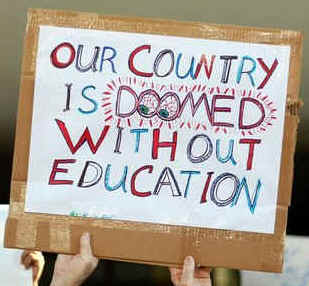 OUR COUNTRY
IS DOOMED
WITHOUT
EDUCATION